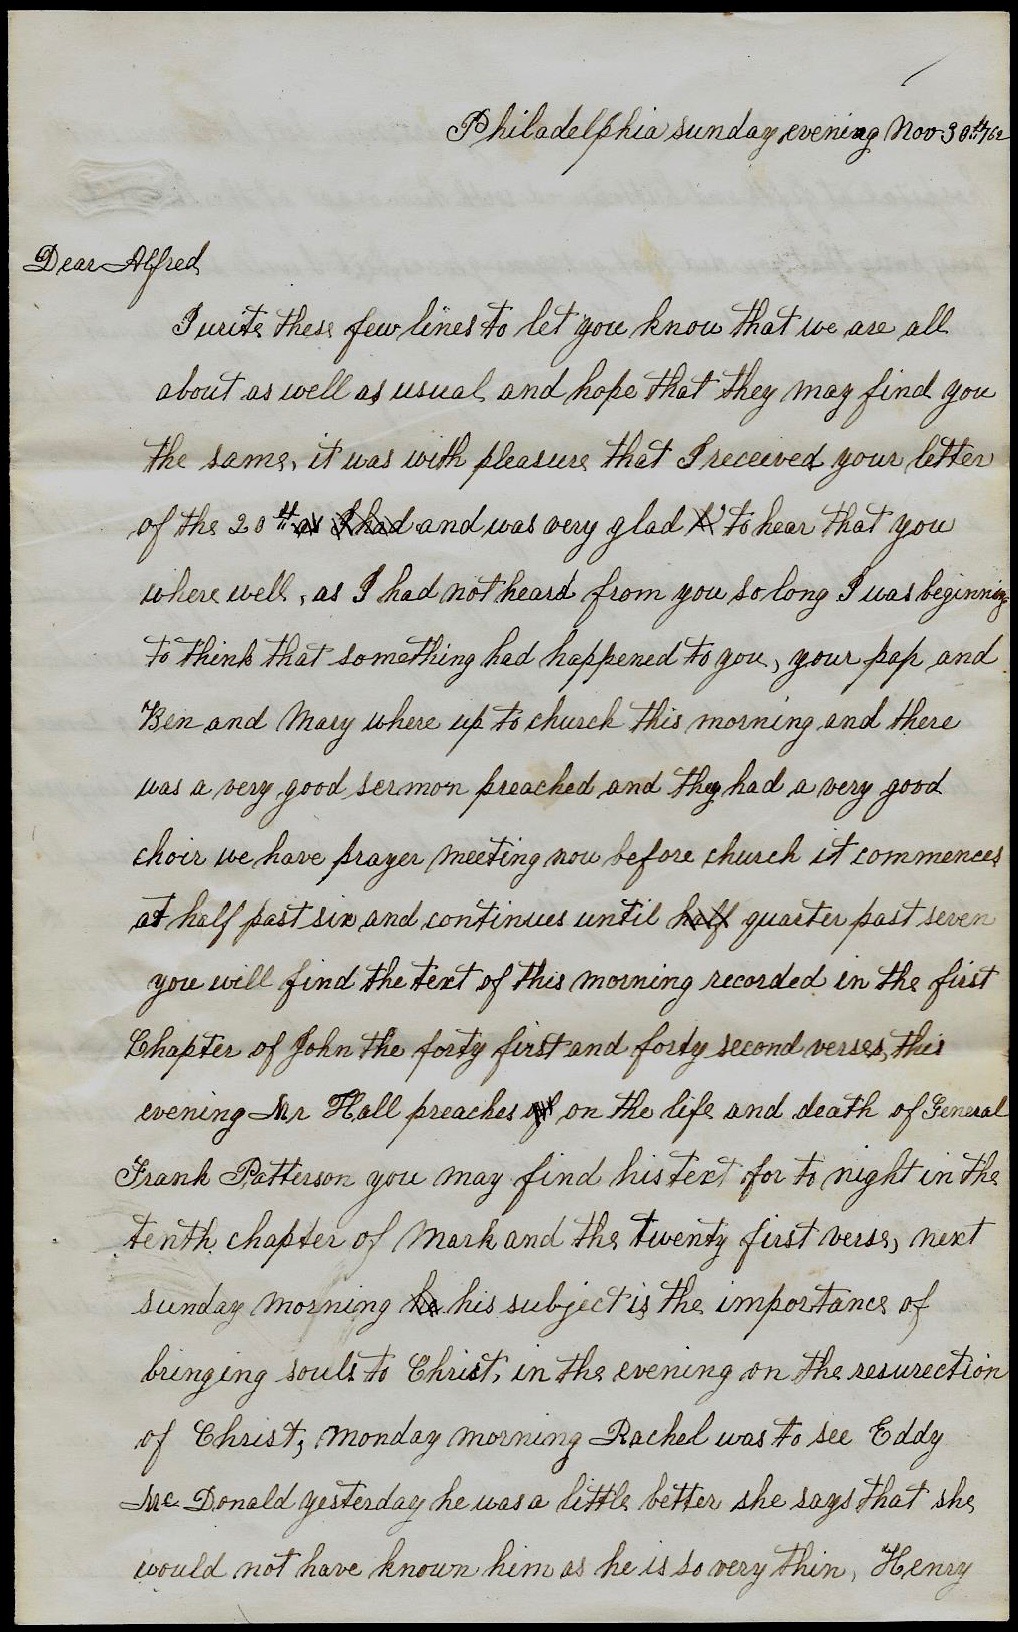 Philadelphia sunday evening Nov 30th/62
Dear Alfred
I write these few lines to let you know that we are all
about as well as usual and hope that they may find you
the same, it was with pleasure that I received your letter
of the 20th as I had and was very glad t to hear that you
where well, as I had not heard from you so long I was beginning
to think that something had happened to you, your pap and
Ben and Mary where up to church this morning and there
was a very good sermon preached and they had a very good
choir we have prayer meeting now before church it commences
at half past six and continues until half quarter past seven
you will find the text of this morning recorded in the first
Chapter of John the forty first and forty second verses, this
evening Mr Hall preaches of on the life and death of General
Frank Patterson you may find his text for to night in the
tenth chapter of Mark and the twenty first verse, next
sunday morning he his subject is the importance of
bringing souls to Christ, in the evening on the resurection
of Christ, Monday morning Rachel was to see Eddy
Mc Donald yesterday he was a little better she says that she
would not have known him as he is so very thin, Henry